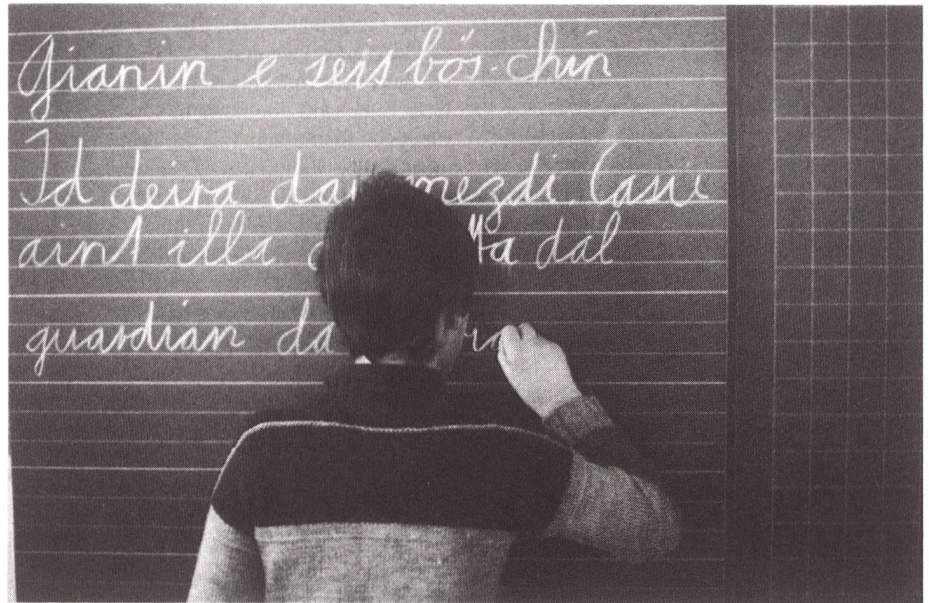 Gianin e seis bös-chin
Id deira da mezdi. Casü
aint illa dal
guardian da